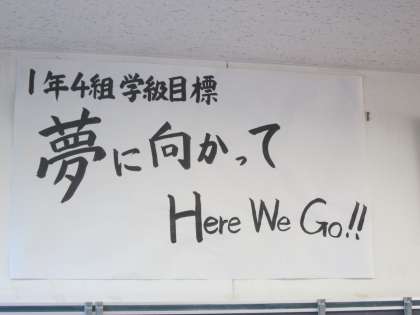 1年4組 学級目標
夢に向かって
Here We Go!!